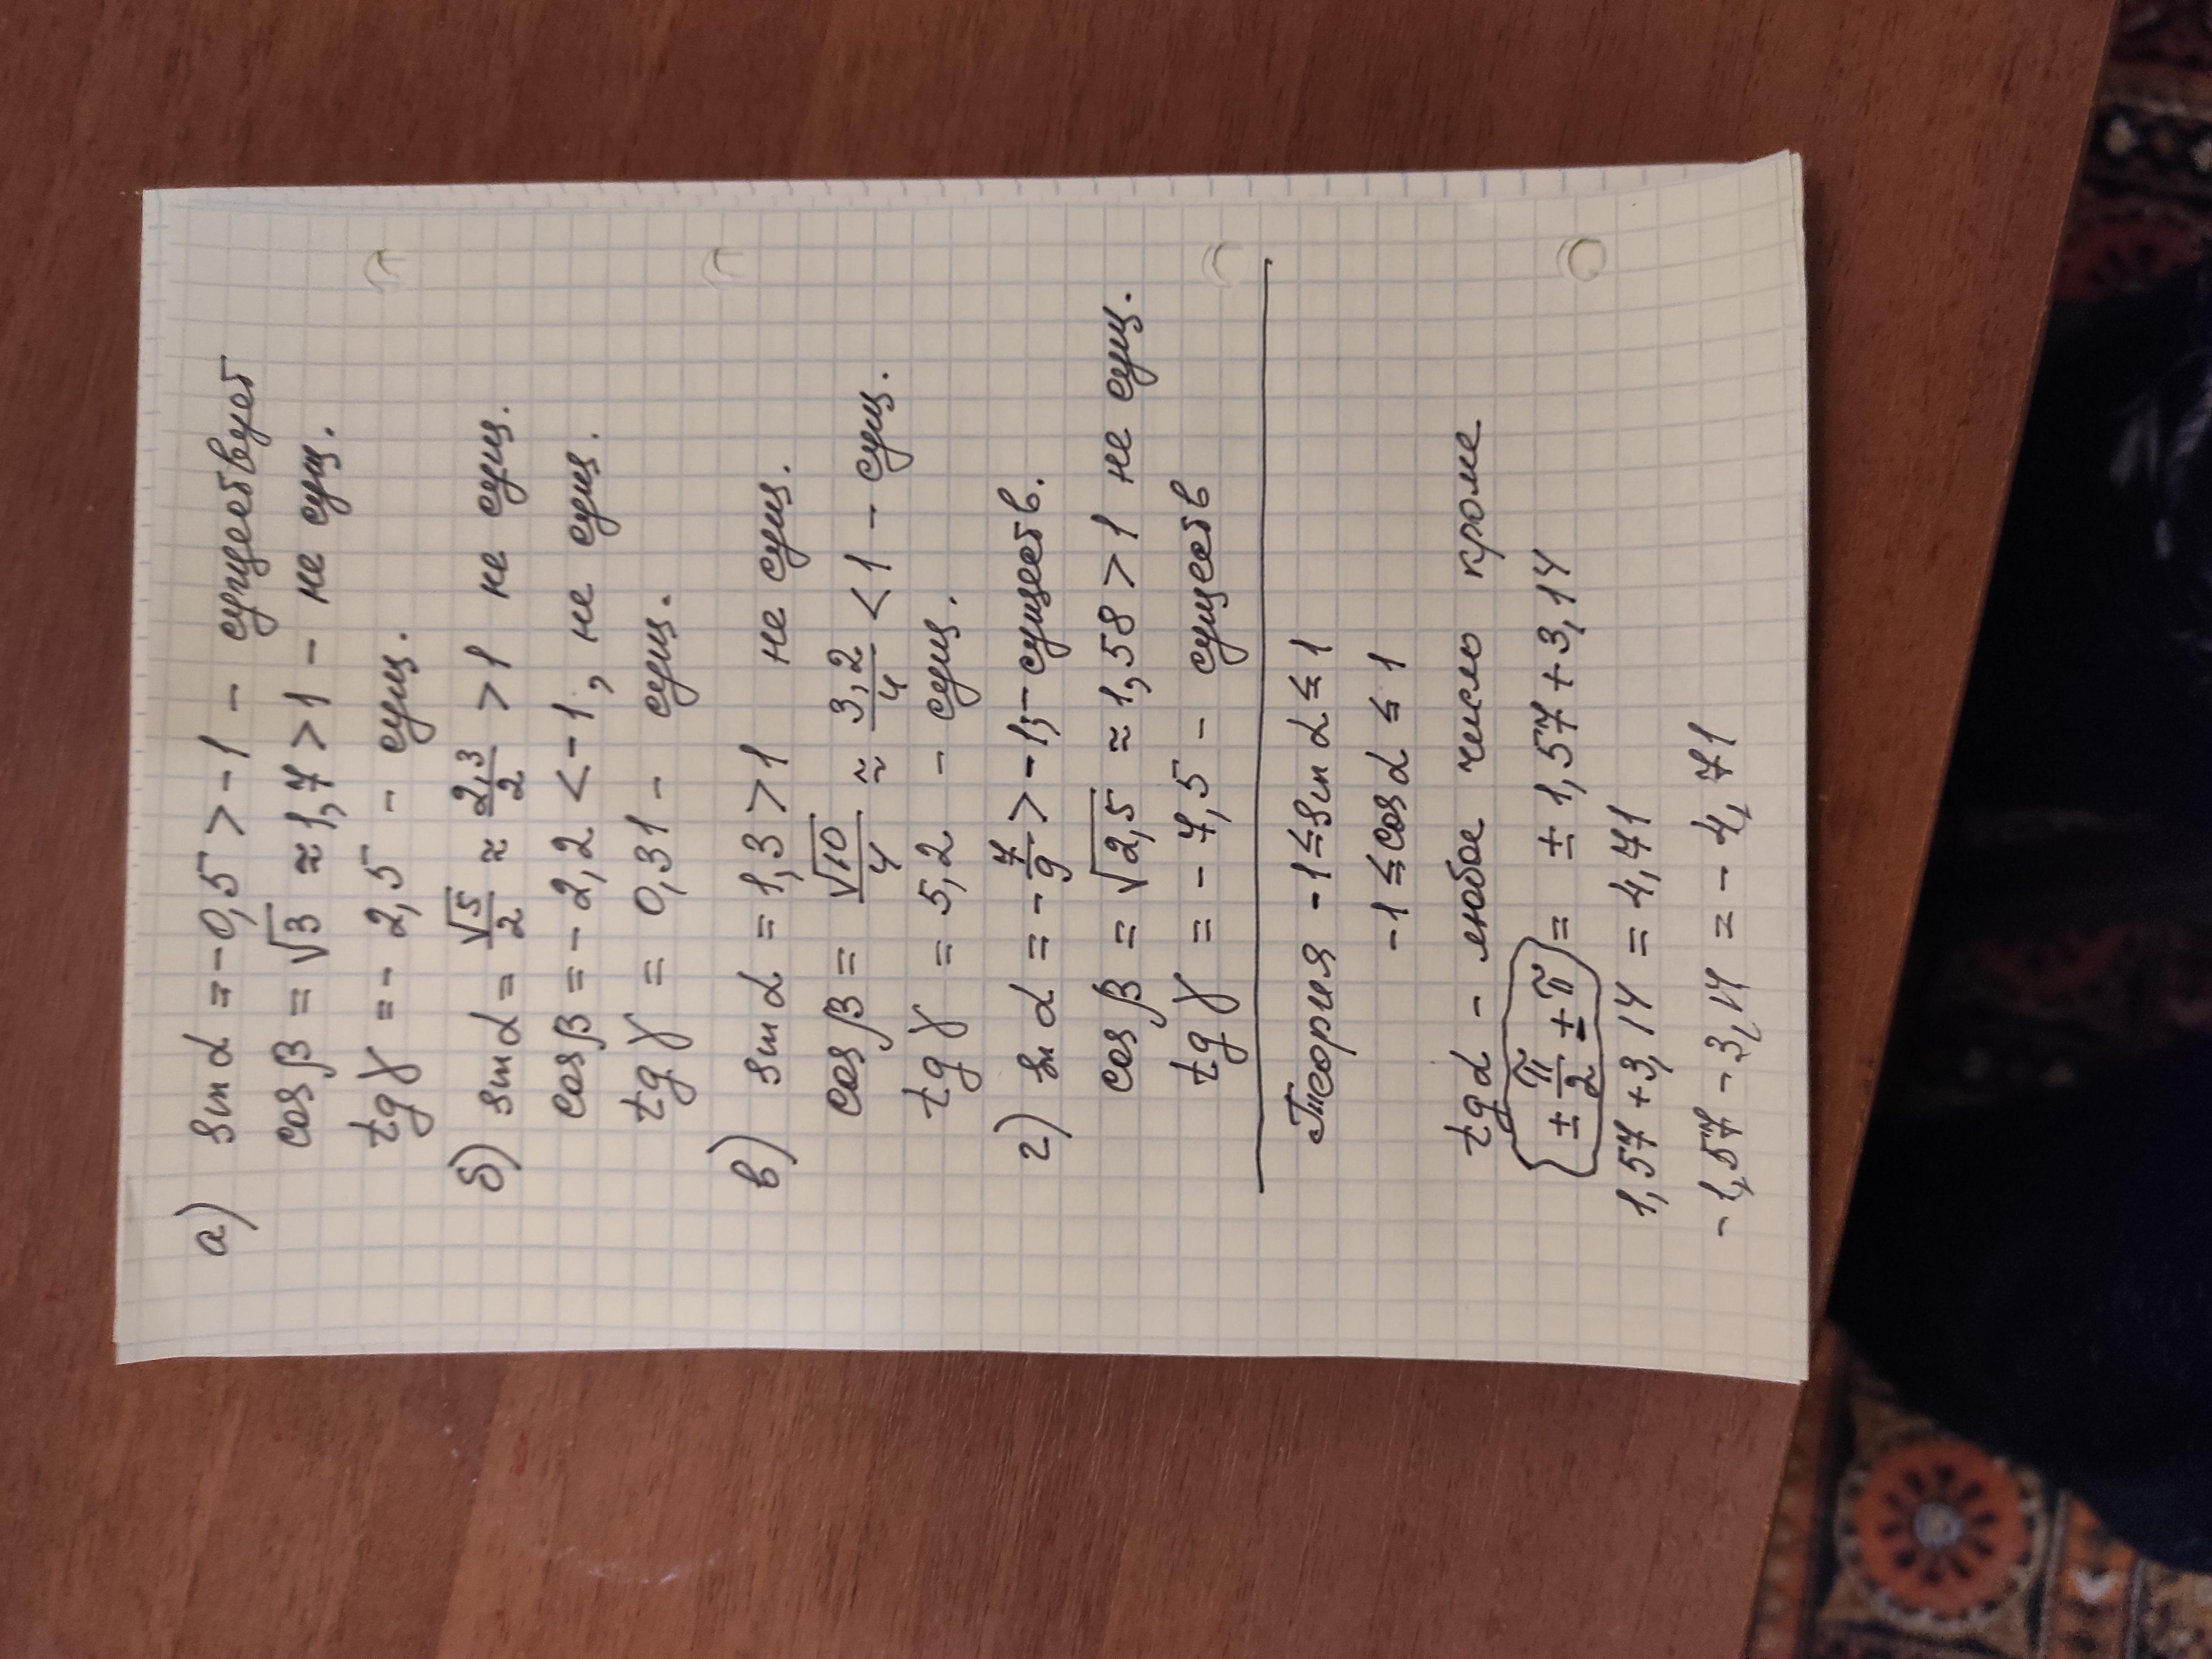 а) sin α = -0,5 > -1 - существует
cos β = √3 ≈ 1,7 > 1 - не сущ.
tg γ = - 2,5 - сущ.
б) sin α = √5/2 ≈ 2,3/2 > 1 не сущ.
cos β = - 2,2 < -1, не сущ.
tg γ = 0,31 - сущ.
в) sin α = 1,3 > 1 не сущ.
cos β = √10/4 ≈ 3,2/4 < 1 - сущ.
tg γ = 5,2 - сущ.
г) sin α = - 7/9 > -1; - существ.
cos β = √2,5 ≈ 1,58 > 1 не сущ.
tg γ = - 7,5 - существ
Теория -1 ≤ sin α ≤ 1
-1 ≤ cos α ≤ 1
tg α - любое число кроме
(± π/2 ± π) = ± 1,57 ± 3,14
1,57 + 3,14 = 4,71
- 1,57 - 3,14 = - 4,71